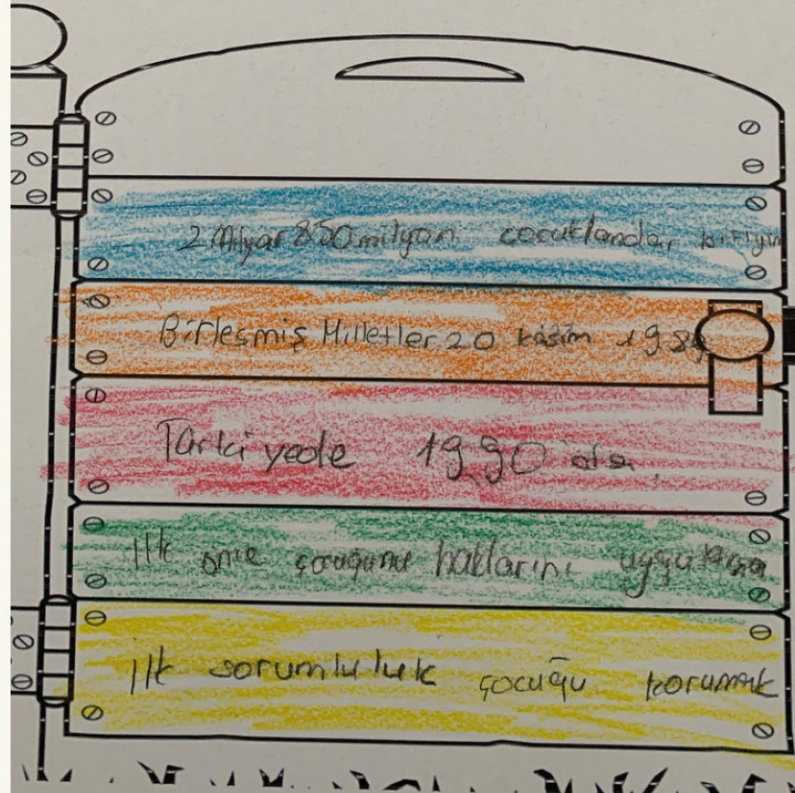 2 Milyar 850 milyon çocuklandan biriyim
Birleşmiş Milletler 20 kasım 1989
Türkiyede 1990'da
Ilk önce çocuğunu haklarını uygulama
Ilk sorumluluk çocuğu korumak